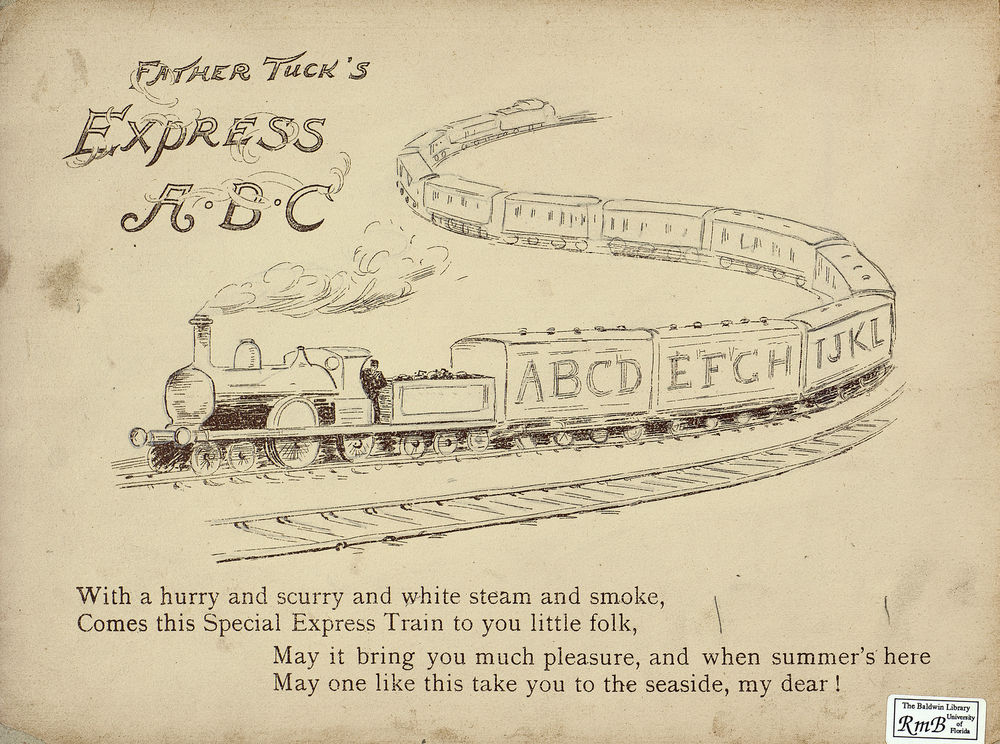 Father Tuck's
Express
A·B·C
ABCD EFGH IJKL
With a hurry and scurry and white steam and smoke,
Comes this Special Express Train to you little folk,
May it bring you much pleasure, and when summer's here
May one like this take you to the seaside, my dear!
The Baldwin Library
RmB University
of
Florida